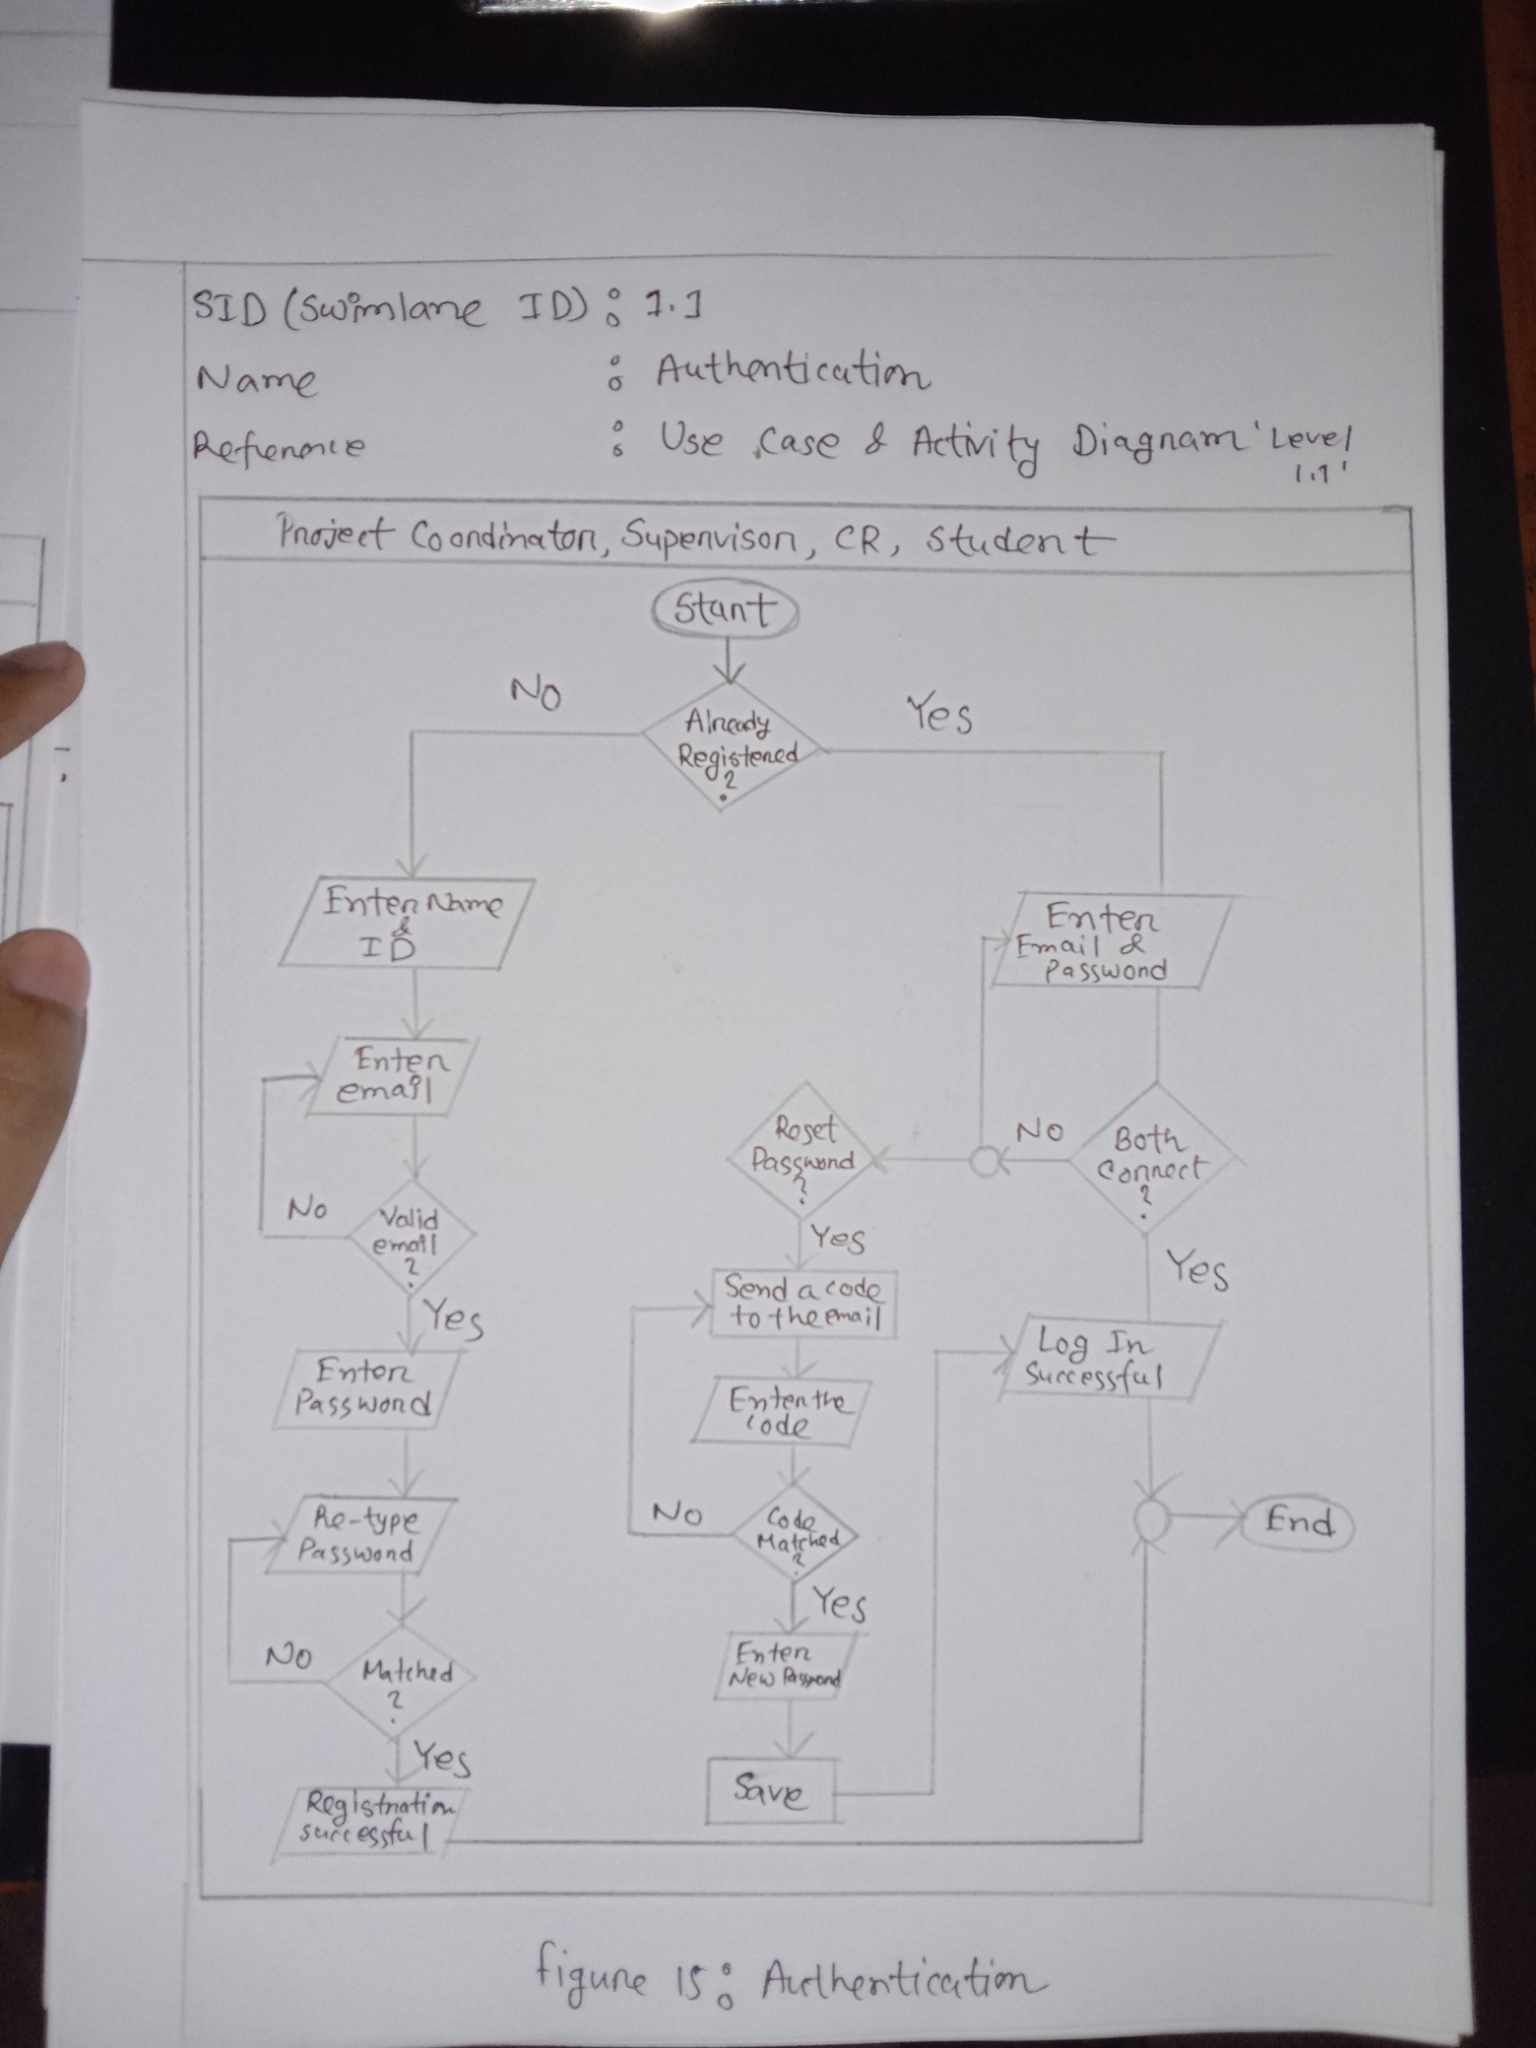 SID (Swimlane ID) : 1.1
Name : Authentication
Reference : Use Case & Activity Diagram 'Level
1.1'
Project Coordinator, Supervisor, CR, Student
Start
No
Yes
Already
Registered
?
Enter Name
&
ID
Enter
email
No
Valid
email
?
Yes
Enter
Password
Re-type
Password
No
Matched
?
Yes
Registration
successful
Enter
Email &
Password
Both
Correct
?
No
Yes
Reset
Password
?
Yes
Send a code
to the email
Enter the
Code
No
Code
Matched
?
Yes
Enter
New Password
Save
Log In
Successful
End
figure 15: Authentication